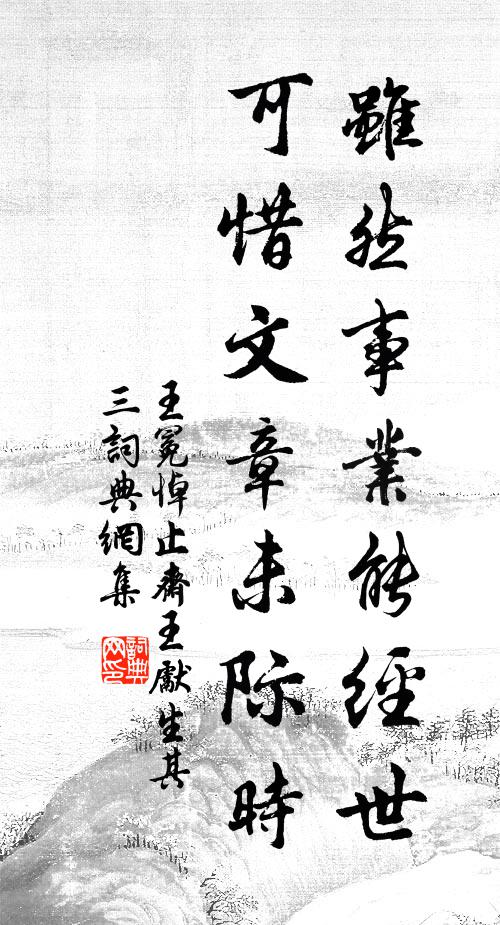 雖然事業能經世
可惜文章未际時
王冕悼止齋王獻生其
三詞典網集
詞典
网印